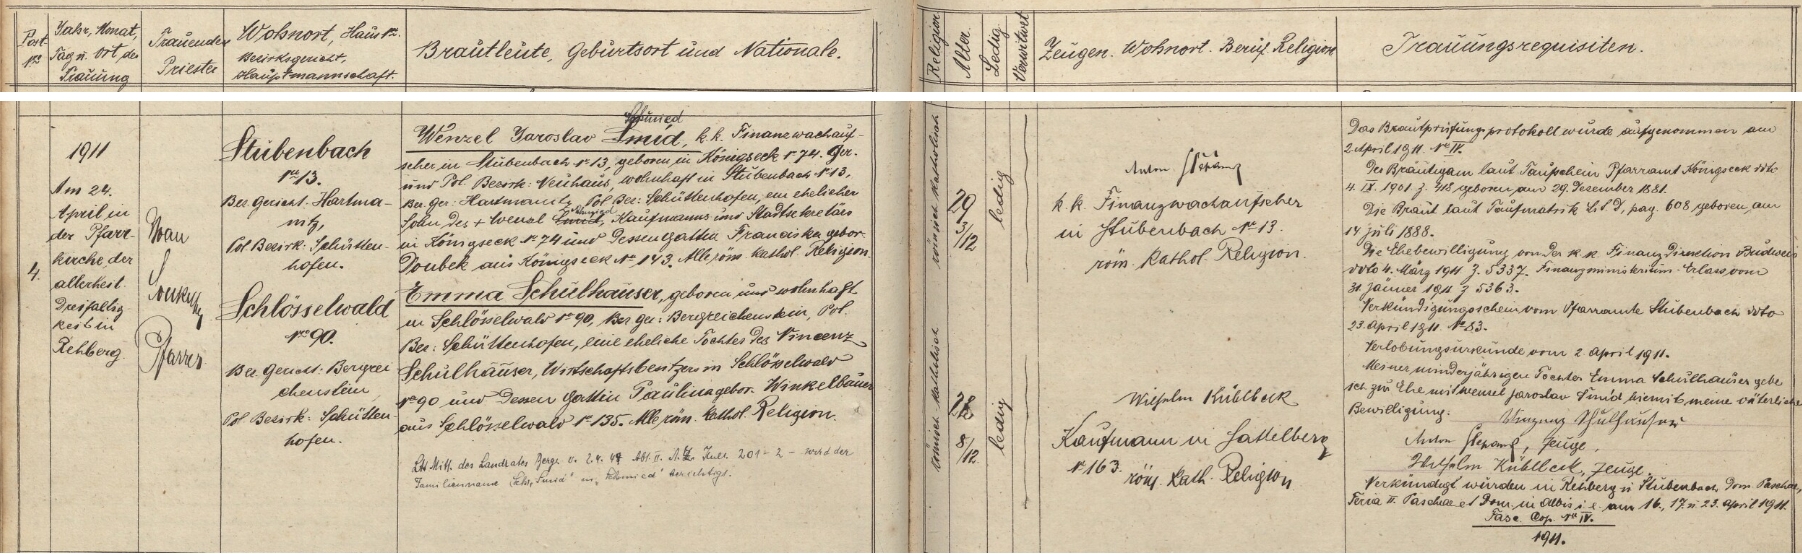 Post N°
Jahr, Monat,
Tag u. Ort der
Trauung
Trauender
Priester
Wohnort, Haus N°.
Bezirksgericht,
Hauptmannschaft.
Brautleute, Geburtsort und Nationale.
Religion
Alter.
Ledig
Verwitwet
Zeugen. Wohnort. Beruf Religion
Trauungsrequisiten.
4.
1911
Am 24.
April in
der Pfarr-
kirche der
allerheil.
Dreifaltig
keit in
Rehberg
Pfarrer
Stubenbach
N° 13.
Bez. Gericht: Hartma-
nitz,
Pol Bezirk: Schütten-
hofen.
Schlösselwald
N° 90.
Bez. Gericht: Bergrei
chenstein,
Pol. Bezirk: Schütten-
hofen.
Schmied
Wenzel Jaroslav Smid, k.k. Finanzwachauf-
seher in Stubenbach N° 13, geboren in Königseck N° 74. Ger.
und Pol. Bezirk: Neuhaus, wohnhaft in Stubenbach N° 13.
Bez. Ger: Hartmanitz, Pol. Bez: Schüttenhofen, ein ehelicher
Schmied
Sohn des + Wenzl Smid, Kaufmanns und Stadtsekretärs
in Königseck N° 74 und dessen Gattin Franciska gebor.
Doubek aus Königseck N° 143. Alle röm. kathol. Religion.
Emma Schulhauser, geboren und wohnhaft
in Schlösselwald N° 90, Bez ger: Bergreichenstein, Pol.
Bez: Schüttenhofen, eine eheliche Tochter des Vincenz
Schulhauser, Wirtschaftsbesitzers in Schlösselwald
N° 90 und dessen Gattin Paulina gebor. Winkelbauer
aus Schlösselwald N° 135. Alle röm. kathol. Religion.
Mitt. des Landrates Berg. v. 2.4. Abt. II. 201-2 - wird der
Familienname Smid in Schmied berichtigt.
römisch katholisch
29
3/12
ledig
römisch katholisch
8/12
ledig
Anton
k. k. Finanzwachaufseher
in Stubenbach N° 13.
röm. kathol. Religion.
Wilhelm Küblbeck
Kaufmann in Sattelberg
N° 163.
röm. kath. Religion
Das Brautprüfungsprotokoll wurde aufgenommen am
2 April 1911. N° IV.
Der Bräutigam laut Taufschein Pfarramt Königseck ddto
4. IX. 1901 Z. 418, geboren am 29. Dezember 1881.
Die Braut laut Taufmatrik Lit. D, pag. 608, geboren am
14 Juli 1888.
Die Ehebewilligung von der k k Finanz Direction Budweis
ddto 4. März 1911 Z. 5337. Finanzministerium- Erlass vom
31 Jänner 1911 Z 5363.
Verkündigungsschein vom Pfarramte Stubenbach ddto
23 April 1911 N° 83.
Verlobungsurkunde vom 2 April 1911.
Meiner minderjährigen Tochter Emma Schulhauser gebe
ich zur Ehe mit Wenzel Jaroslav Smid hiemit meine väterliche
Bewilligung: Schulhauser
Anton Zeuge.
Wilhelm Küblbeck, Zeuge.
Verkündigt wurden in Rehberg u Stubenbach Dom. Paschae,
Feria II. Paschae et Dom. in albis i.e. am 16., 17. u 23. April 1911.
Fasc. Cop. N° IV.
1911.